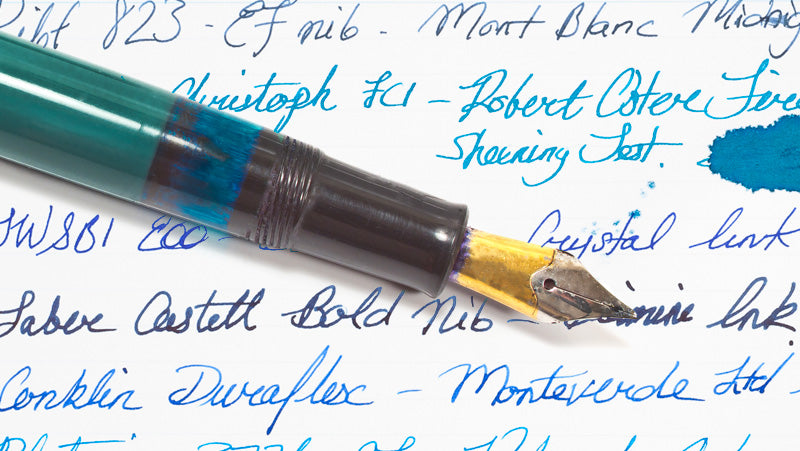 Pilot 823 - EF nib - Mont Blanc Midnig
Christoph FC1 - Robert Oster Fire
Sheening Test.
TWSBI ECO - Crystal Ink
Faber Castell Bold Nib - Ink
Conklin Duraflex - Monteverde Ltd -